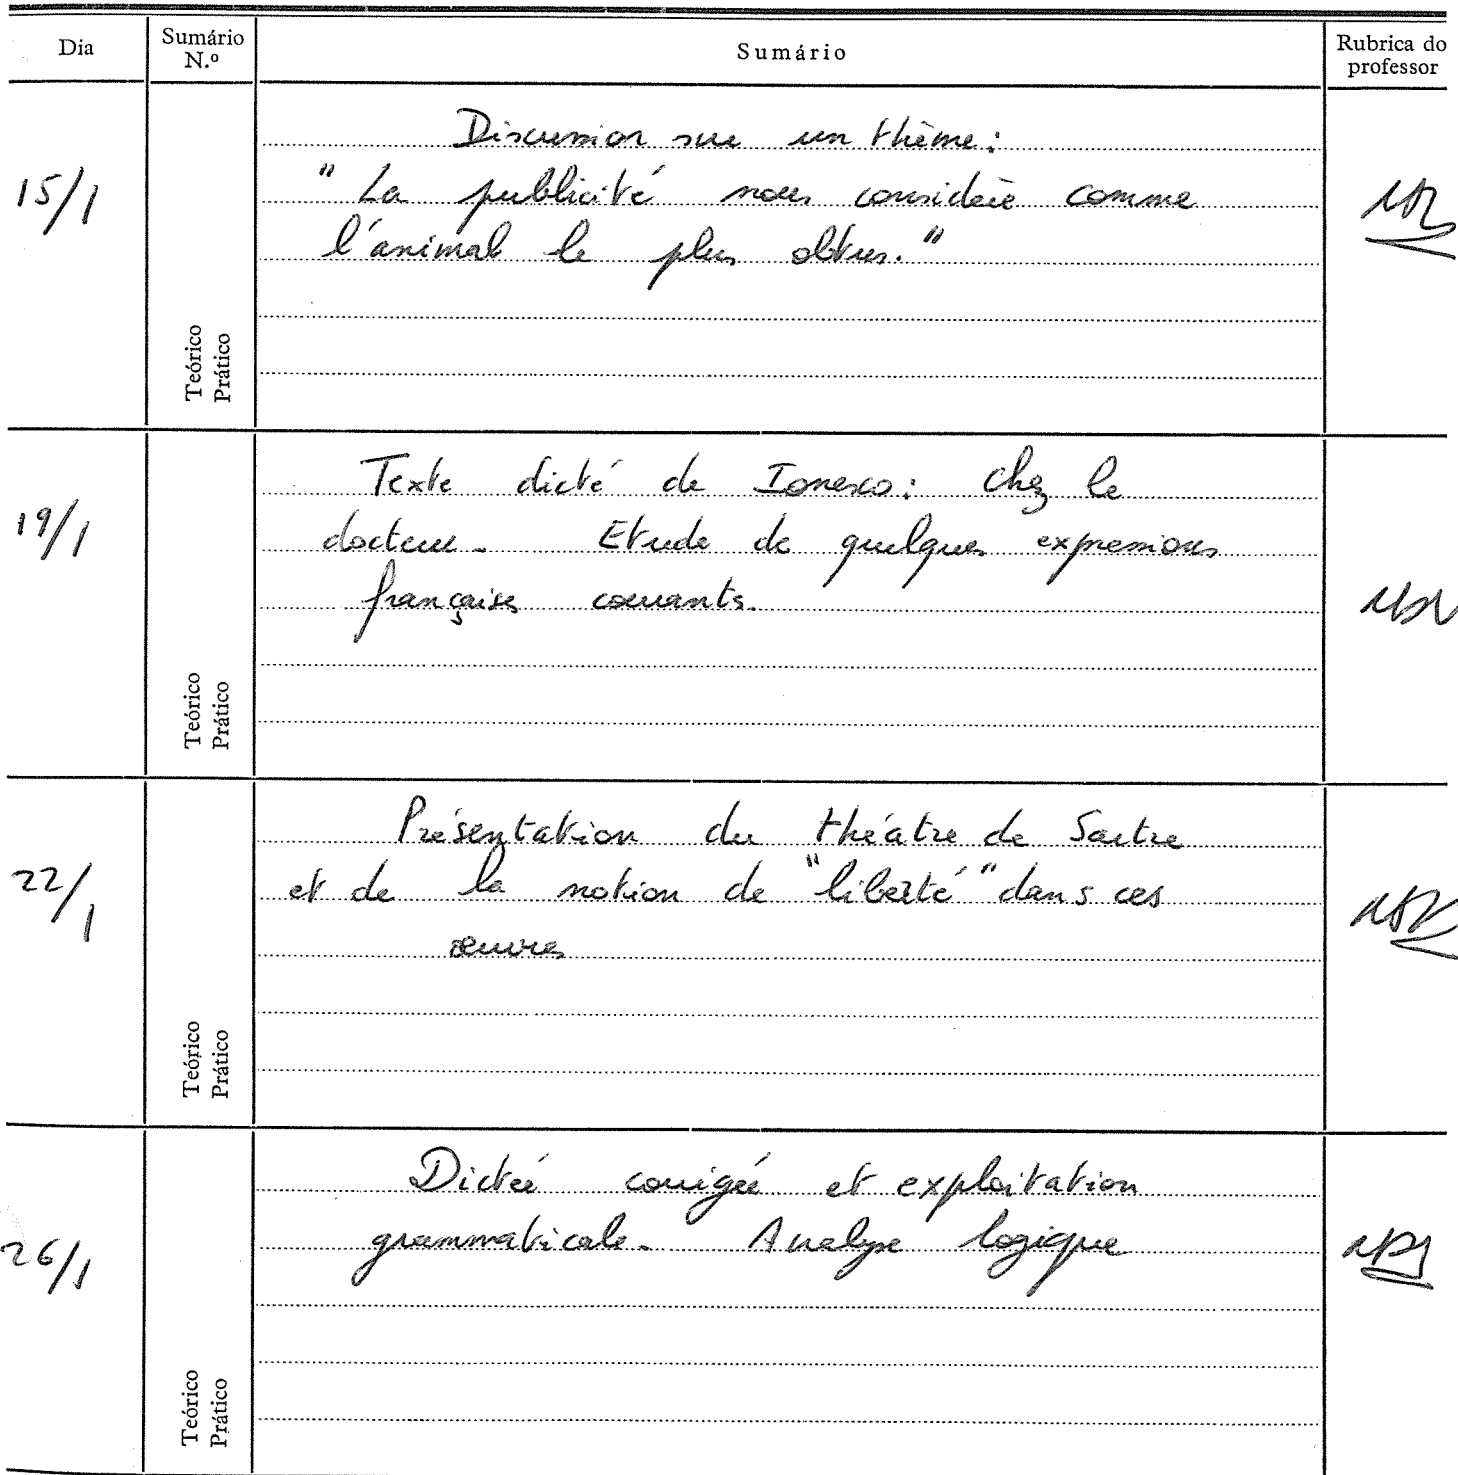 Dia
Sumário N.º
Sumário
Rubrica do professor
15/1
Teórico
Prático
Discussion sur un thème:
"La publicité nous considère comme
l'animal le plus obtus."
19/1
Teórico
Prático
Texte dicté de Ionesco: chez le
docteur. Etude de quelques expressions
françaises courants.
22/1
Teórico
Prático
Présentation du théâtre de Sartre
et de la notion de "liberté" dans ces
œuvres
26/1
Teórico
Prático
Dictée corrigée et exploitation
grammaticale. Analyse logique